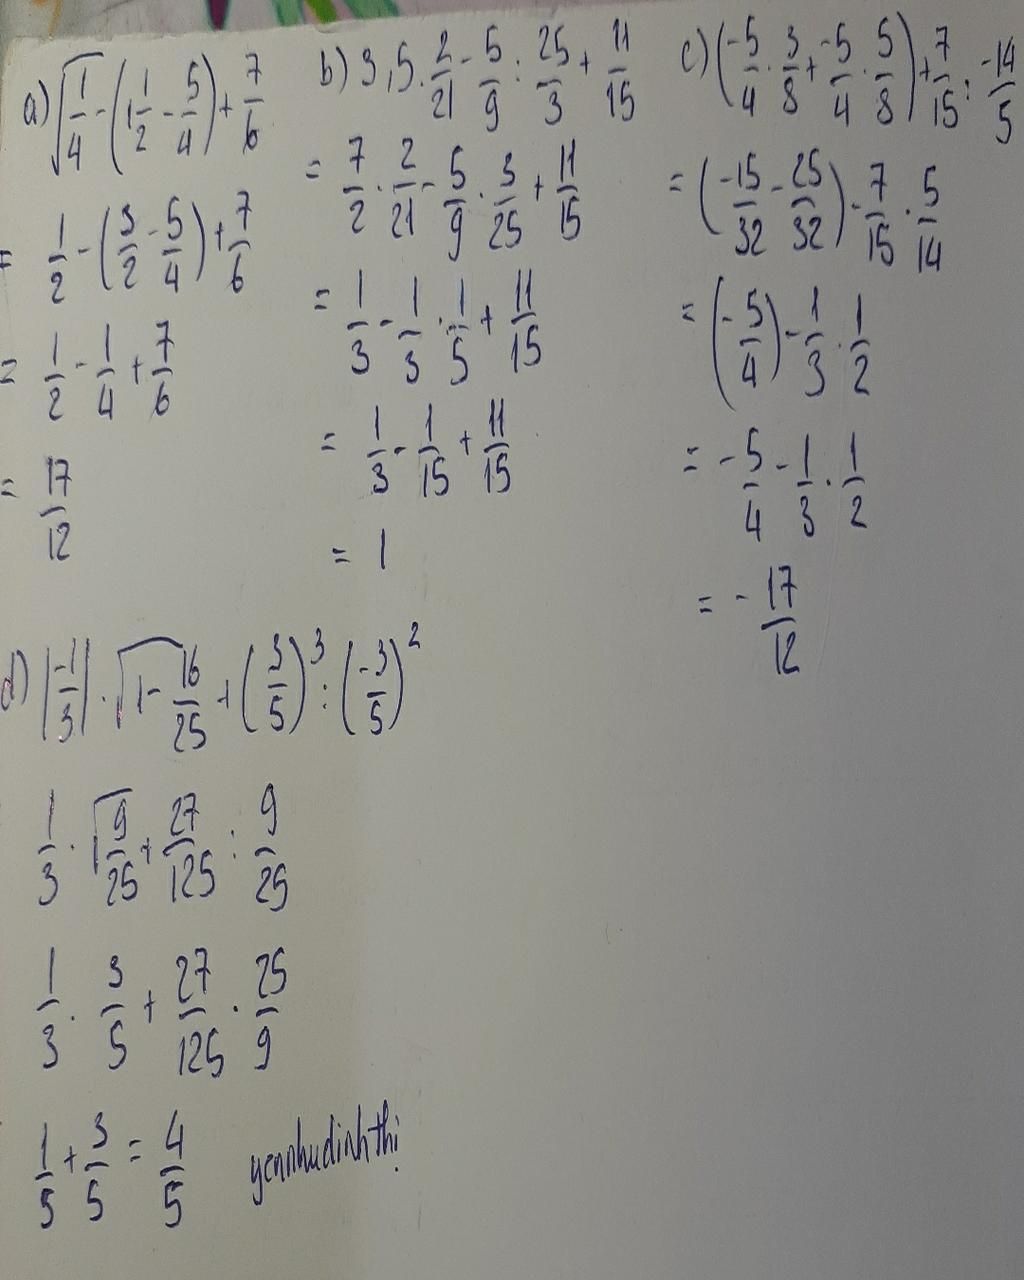 a) √(1/4) - (1 1/2 - 5/4) + 7/6
= 1/2 - (3/2 - 5/4) + 7/6
= 1/2 - 1/4 + 7/6
= 17/12
b) 3,5 . 2/21 - 5/9 : 25/3 + 11/15
= 7/2 . 2/21 - 5/9 . 3/25 + 11/15
= 1/3 - 1/3 . 1/5 + 11/15
= 1/3 - 1/15 + 11/15
= 1
c) (-5/4 . 3/8 + -5/4 . 5/8) + 7/15 : -14/5
= (-15/32 - 25/32) - 7/15 . 5/14
= (-5/4) - 1/3 . 1/2
= -5/4 - 1/3 . 1/2
= -17/12
d) |-1/3| . √(1 - 16/25) + (3/5)³ : (-3/5)²
1/3 . √(9/25) + 27/125 : 9/25
1/3 . 3/5 + 27/125 . 25/9
1/5 + 3/5 = 4/5
yennhudinhthi